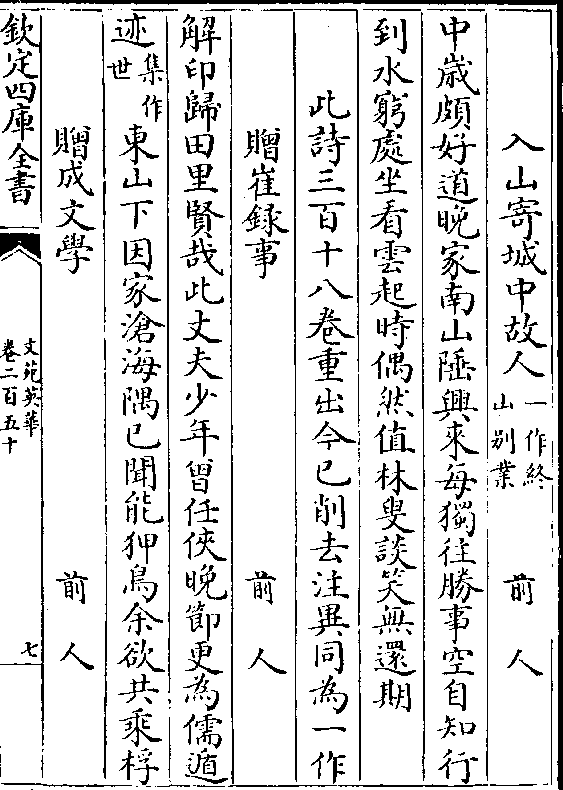 入山寄城中故人一作終山别業　前人
中歳頗好道晚家南山陲興來每獨往勝事空自知行
到水窮處坐看雲起時偶然值林叟談笑無還期
此詩三百十八卷重出今已削去注異同為一作
贈崔録事　前人
解印歸田里賢哉此丈夫少年曾任俠晚節更為儒遁
迹集作世東山下因家滄海隅已聞能狎鳥余欲共乘桴
贈成文學　前人
欽定四庫全書
文苑英華
卷二百五十
七